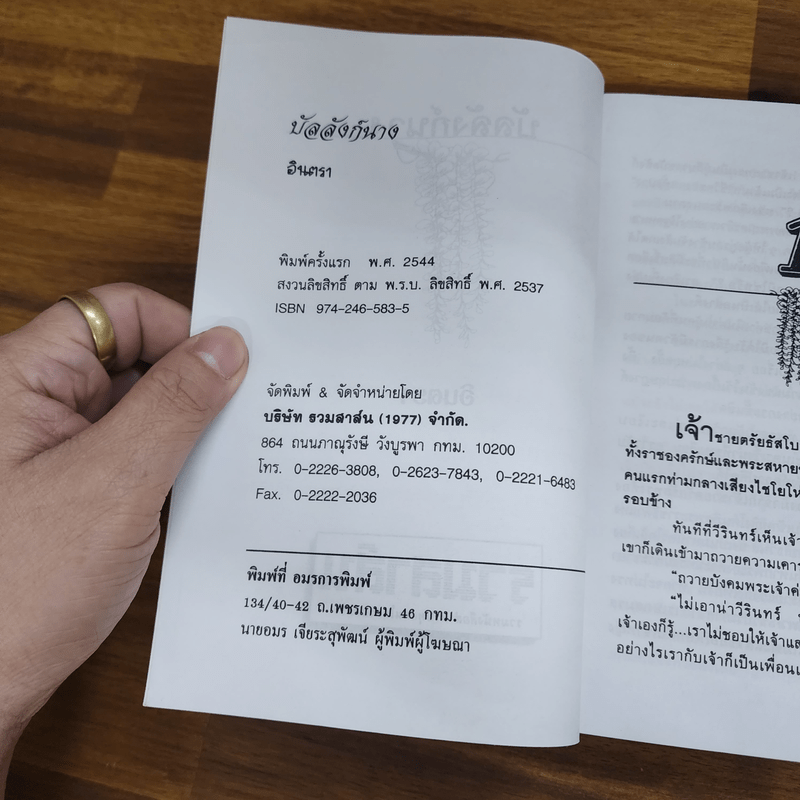 บัลลังก์นาง
อินตรา
พิมพ์ครั้งแรก พ.ศ. 2544
สงวนลิขสิทธิ์ ตาม พ.ร.บ. ลิขสิทธิ์ พ.ศ. 2537
ISBN 974-246-583-5
จัดพิมพ์ & จัดจำหน่ายโดย
บริษัท รวมสาส์น (1977) จำกัด.
864 ถนนภาณุรังษี วังบูรพา กทม. 10200
โทร. 0-2226-3808, 0-2623-7843, 0-2221-6483
Fax. 0-2222-2036
พิมพ์ที่ อมรการพิมพ์
134/40-42 ถ.เพชรเกษม 46 กทม.
นายอมร เจียระสุพัฒน์ ผู้พิมพ์ผู้โฆษณา
เจ้าชายตรัยธัสโบ
ทั้งราชองครักษ์และพระสหาย
คนแรกท่ามกลางเสียงไชโยโห
รอบข้าง
ทันทีที่วีรินทร์เห็นเจ้า
เขาก็เดินเข้ามาถวายความเคา
“ถวายบังคมพระเจ้าค่
“ไม่เอาน่าวีรินทร์
เจ้าเองก็รู้...เราไม่ชอบให้เจ้าแส
อย่างไรเรากับเจ้าก็เป็นเพื่อนเ